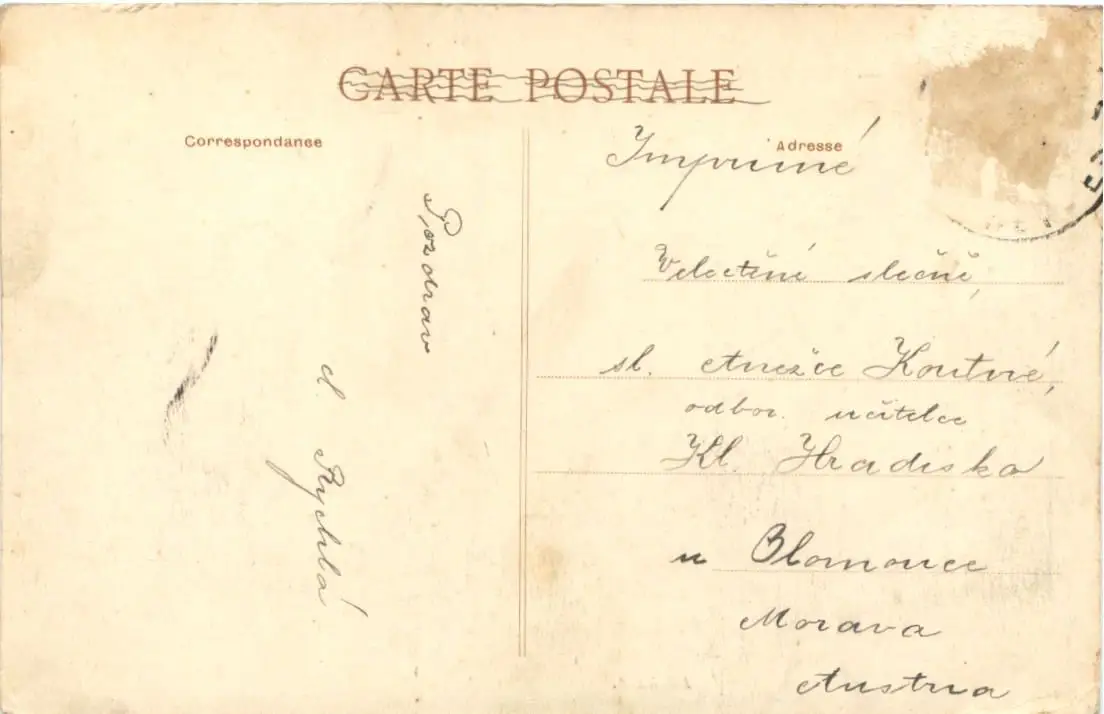 CARTE POSTALE
Correspondance
Adresse
Imprimé
Pozdrav
A. Rychlá
Velectěné slečně,
sl. Anežce Koutné,
odbor. učitelce
Kl. Hradisko
u Olomouce
Morava
Austria